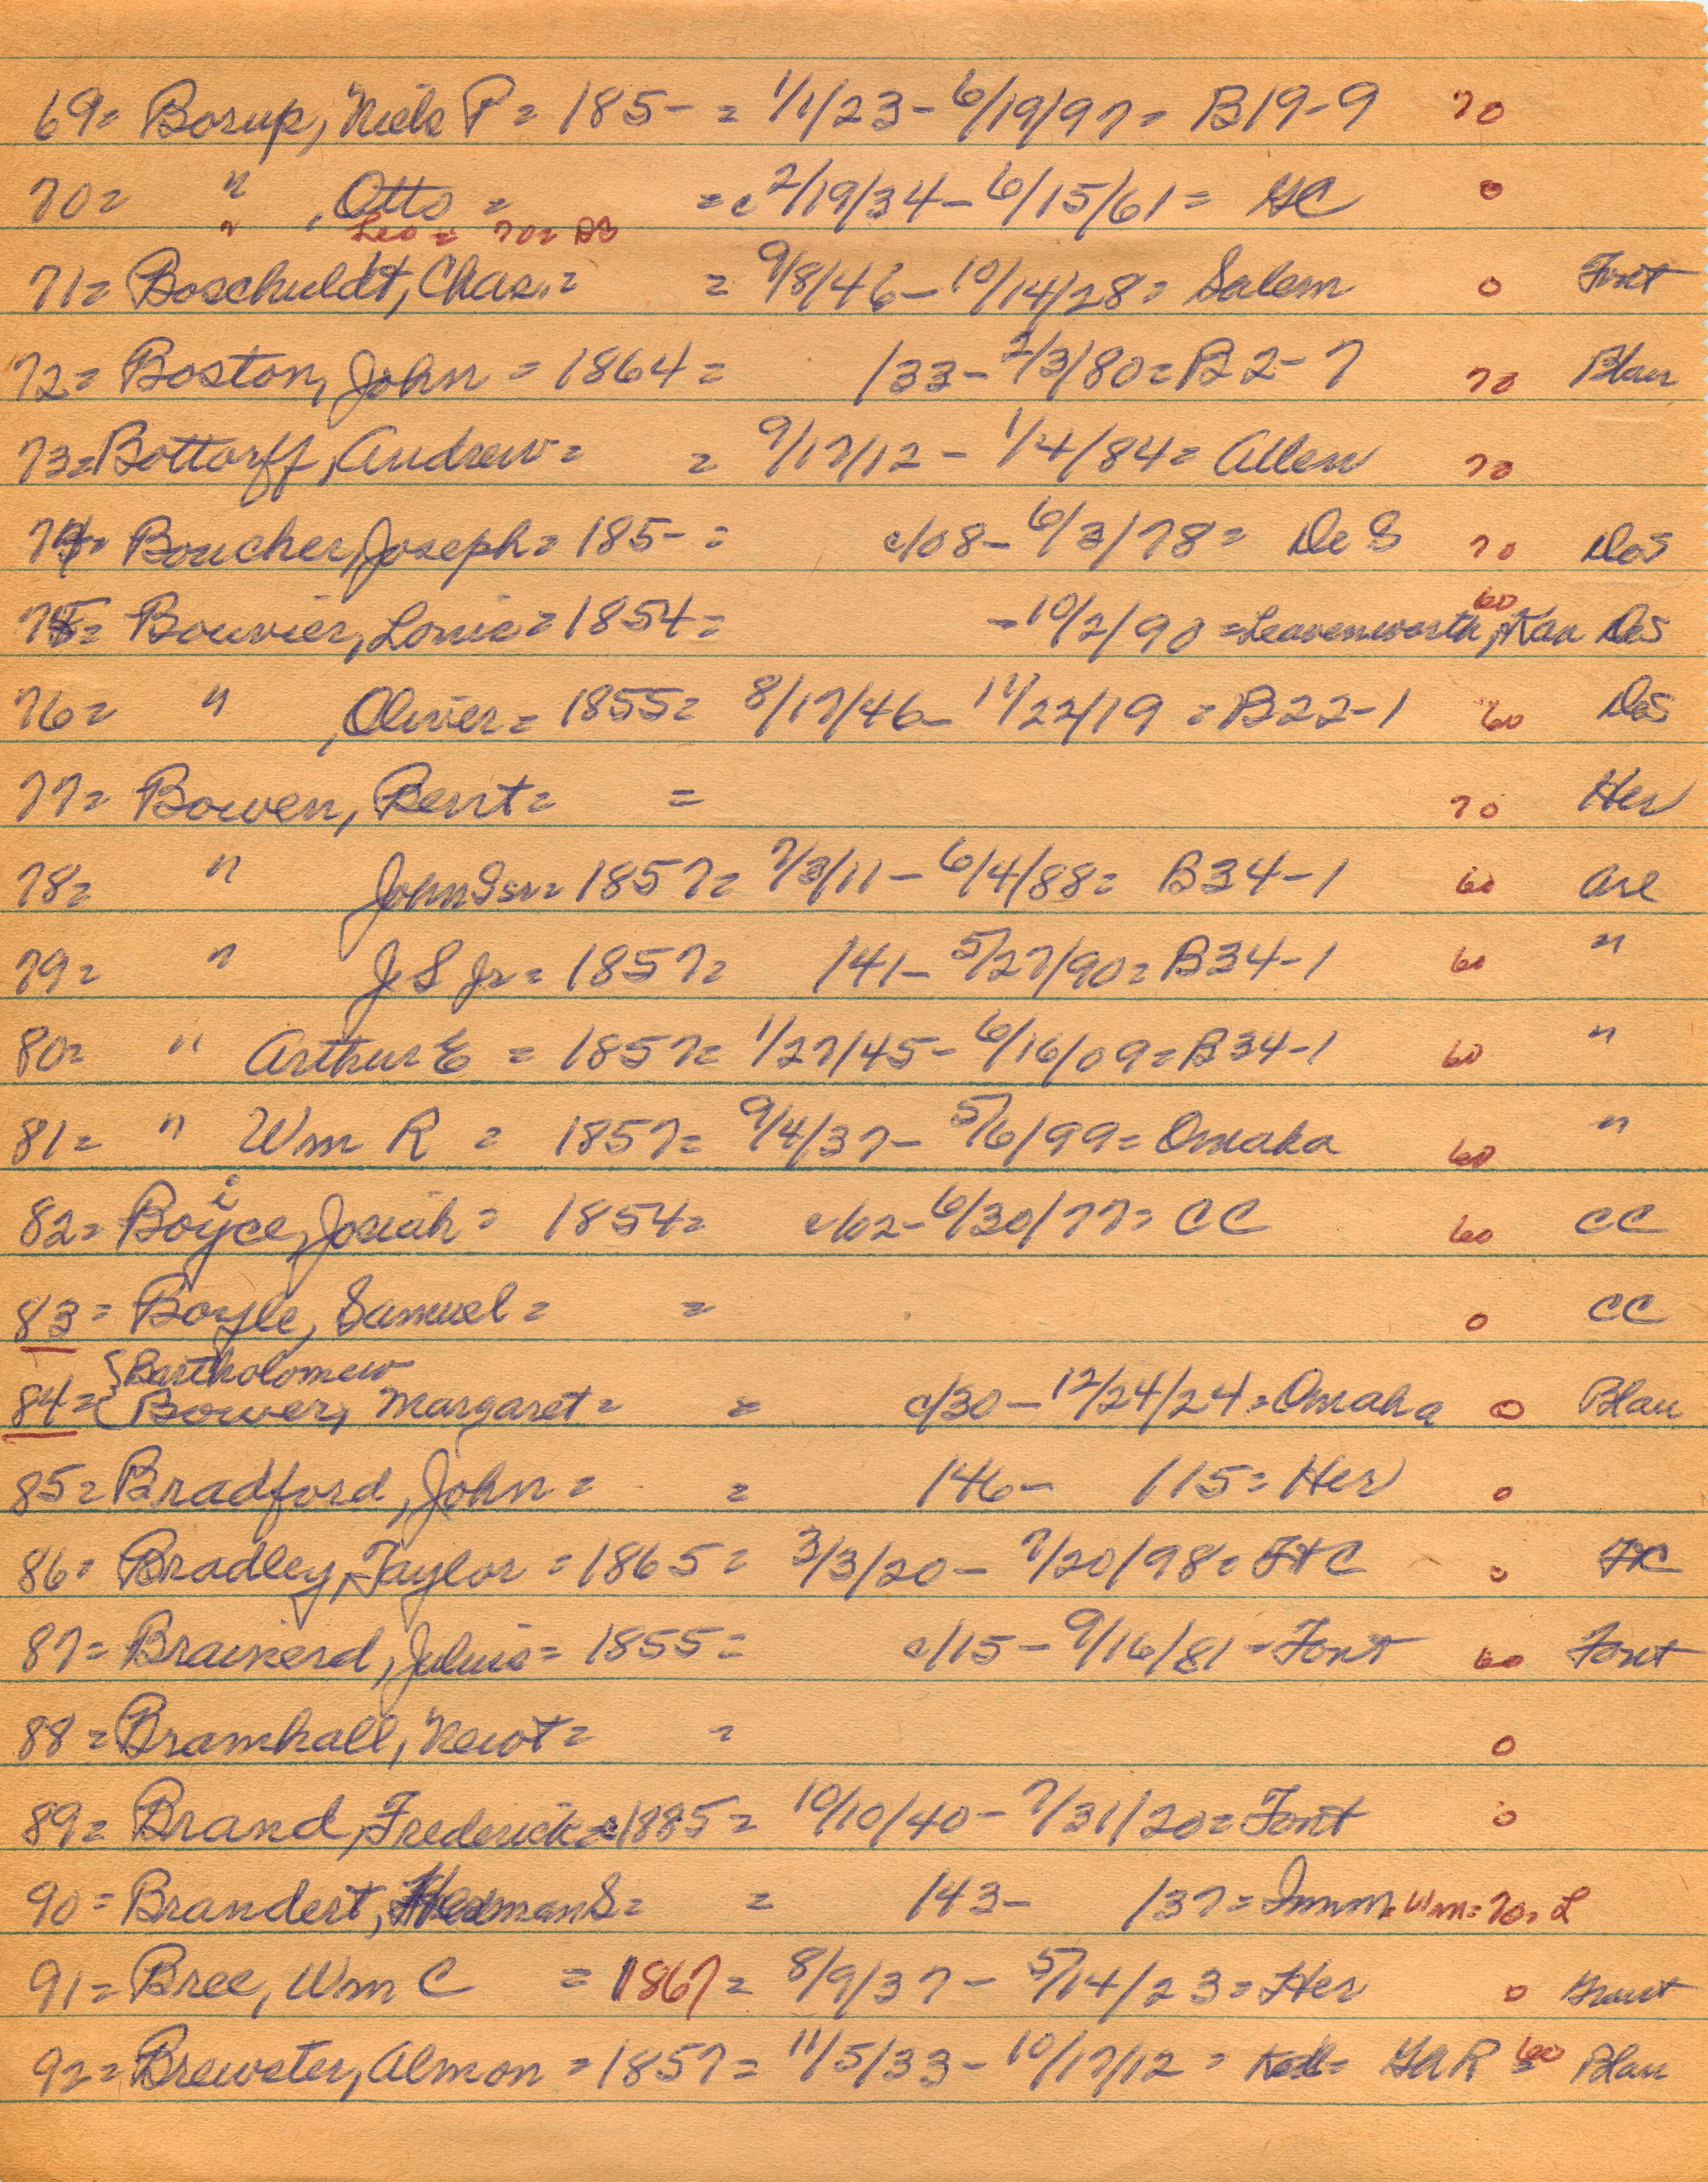 69= Borup, Niels P= 185- = 1/1/23- 6/19/97= B19-9 70
70= " , Otto = = c2/19/34- 6/15/61= GC 0
" Leo= 70= DB
71= Boschuldt, Chas.= = 9/8/46- 10/14/28= Salem 0 Font
72= Boston, John = 1864= /33- 2/3/80= B2-7 70 Blau
73= Bottorff, Andrew= = 9/17/12 - 1/4/84= Allen 70
74= Boucher, Joseph= 185-= c/08- 6/3/78= De S 70 DeS
75= Bouvier, Louis= 1854= -10/2/90 =Leavenworth, Kan 60 DeS
76= " , Olivier= 1855= 8/17/46- 11/22/19 =B22-1 60 DeS
77= Bowen, Bent= = 70 Her
78= " John S sr= 1857= 7/3/11- 6/4/88= B34-1 60 Arl
79= " J S Jr= 1857= /41- 5/27/90= B34-1 60 "
80= " Arthur E = 1857= 1/27/45- 6/16/09= B34-1 60 "
81= " Wm R = 1857= 9/4/37- 5/6/99= Omaha 60 "
i
82= Boyce, Josiah= 1854= c/02- 6/30/77= CC 60 CC
83= Boyle, Samuel= = 0 CC
{Bartholomew
84={Bower, Margaret= = c/30- 12/24/24= Omaha 0 Blau
85= Bradford, John= = /46- /15= Her 0
86= Bradley, Taylor = 1865= 3/3/20- 7/20/98= FtC 0 FtC
87= Brainerd, Julius= 1855= c/15- 9/16/81= Font 60 Font
88= Bramhall, Newt= = 0
89= Brand, Frederick= c1885= 10/10/40- 7/31/20= Font 0
90= Brandert, HermanS= = /43- /37= Imm. Wm= 70= L
91= Bree, Wm C = 1867= 8/9/37- 5/14/23= Her 0 Grant
92= Brewster, Almon = 1857= 11/5/33- 10/17/12 = = GAR = 60 Blau